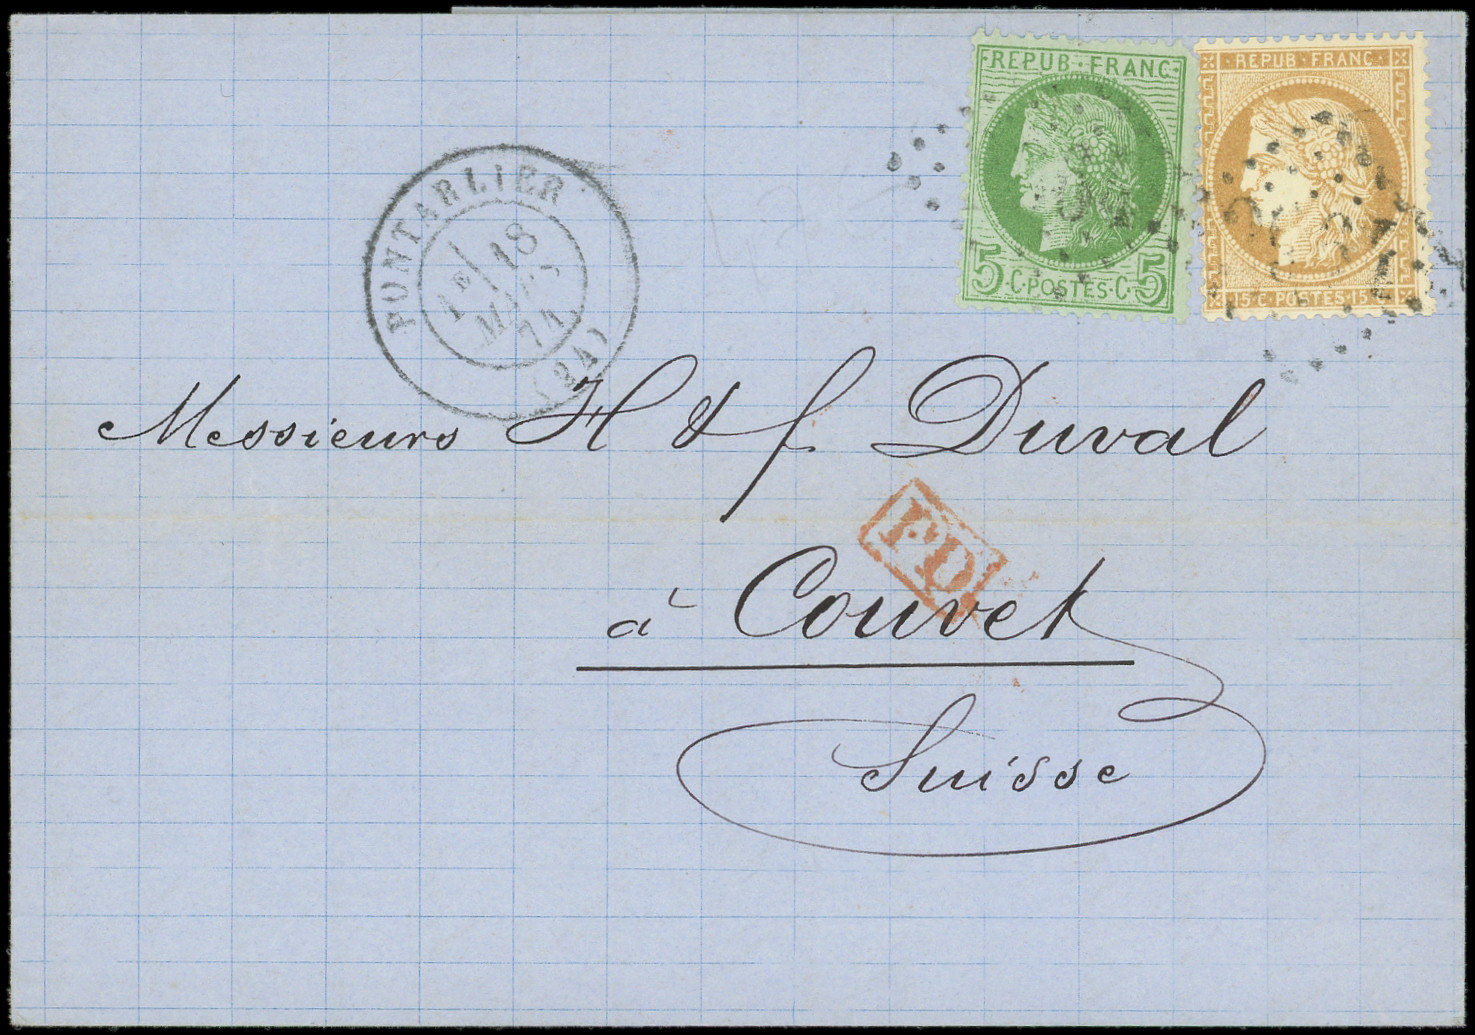 REPUB · FRANC
5 · C · POSTES · C · 5
REPUB · FRANC
15 · C · POSTES · 15 · C
PONTARLIER
1E 18
MARS
74
(24)
Messieurs H & f Duval
P.D
à Couvet
Suisse